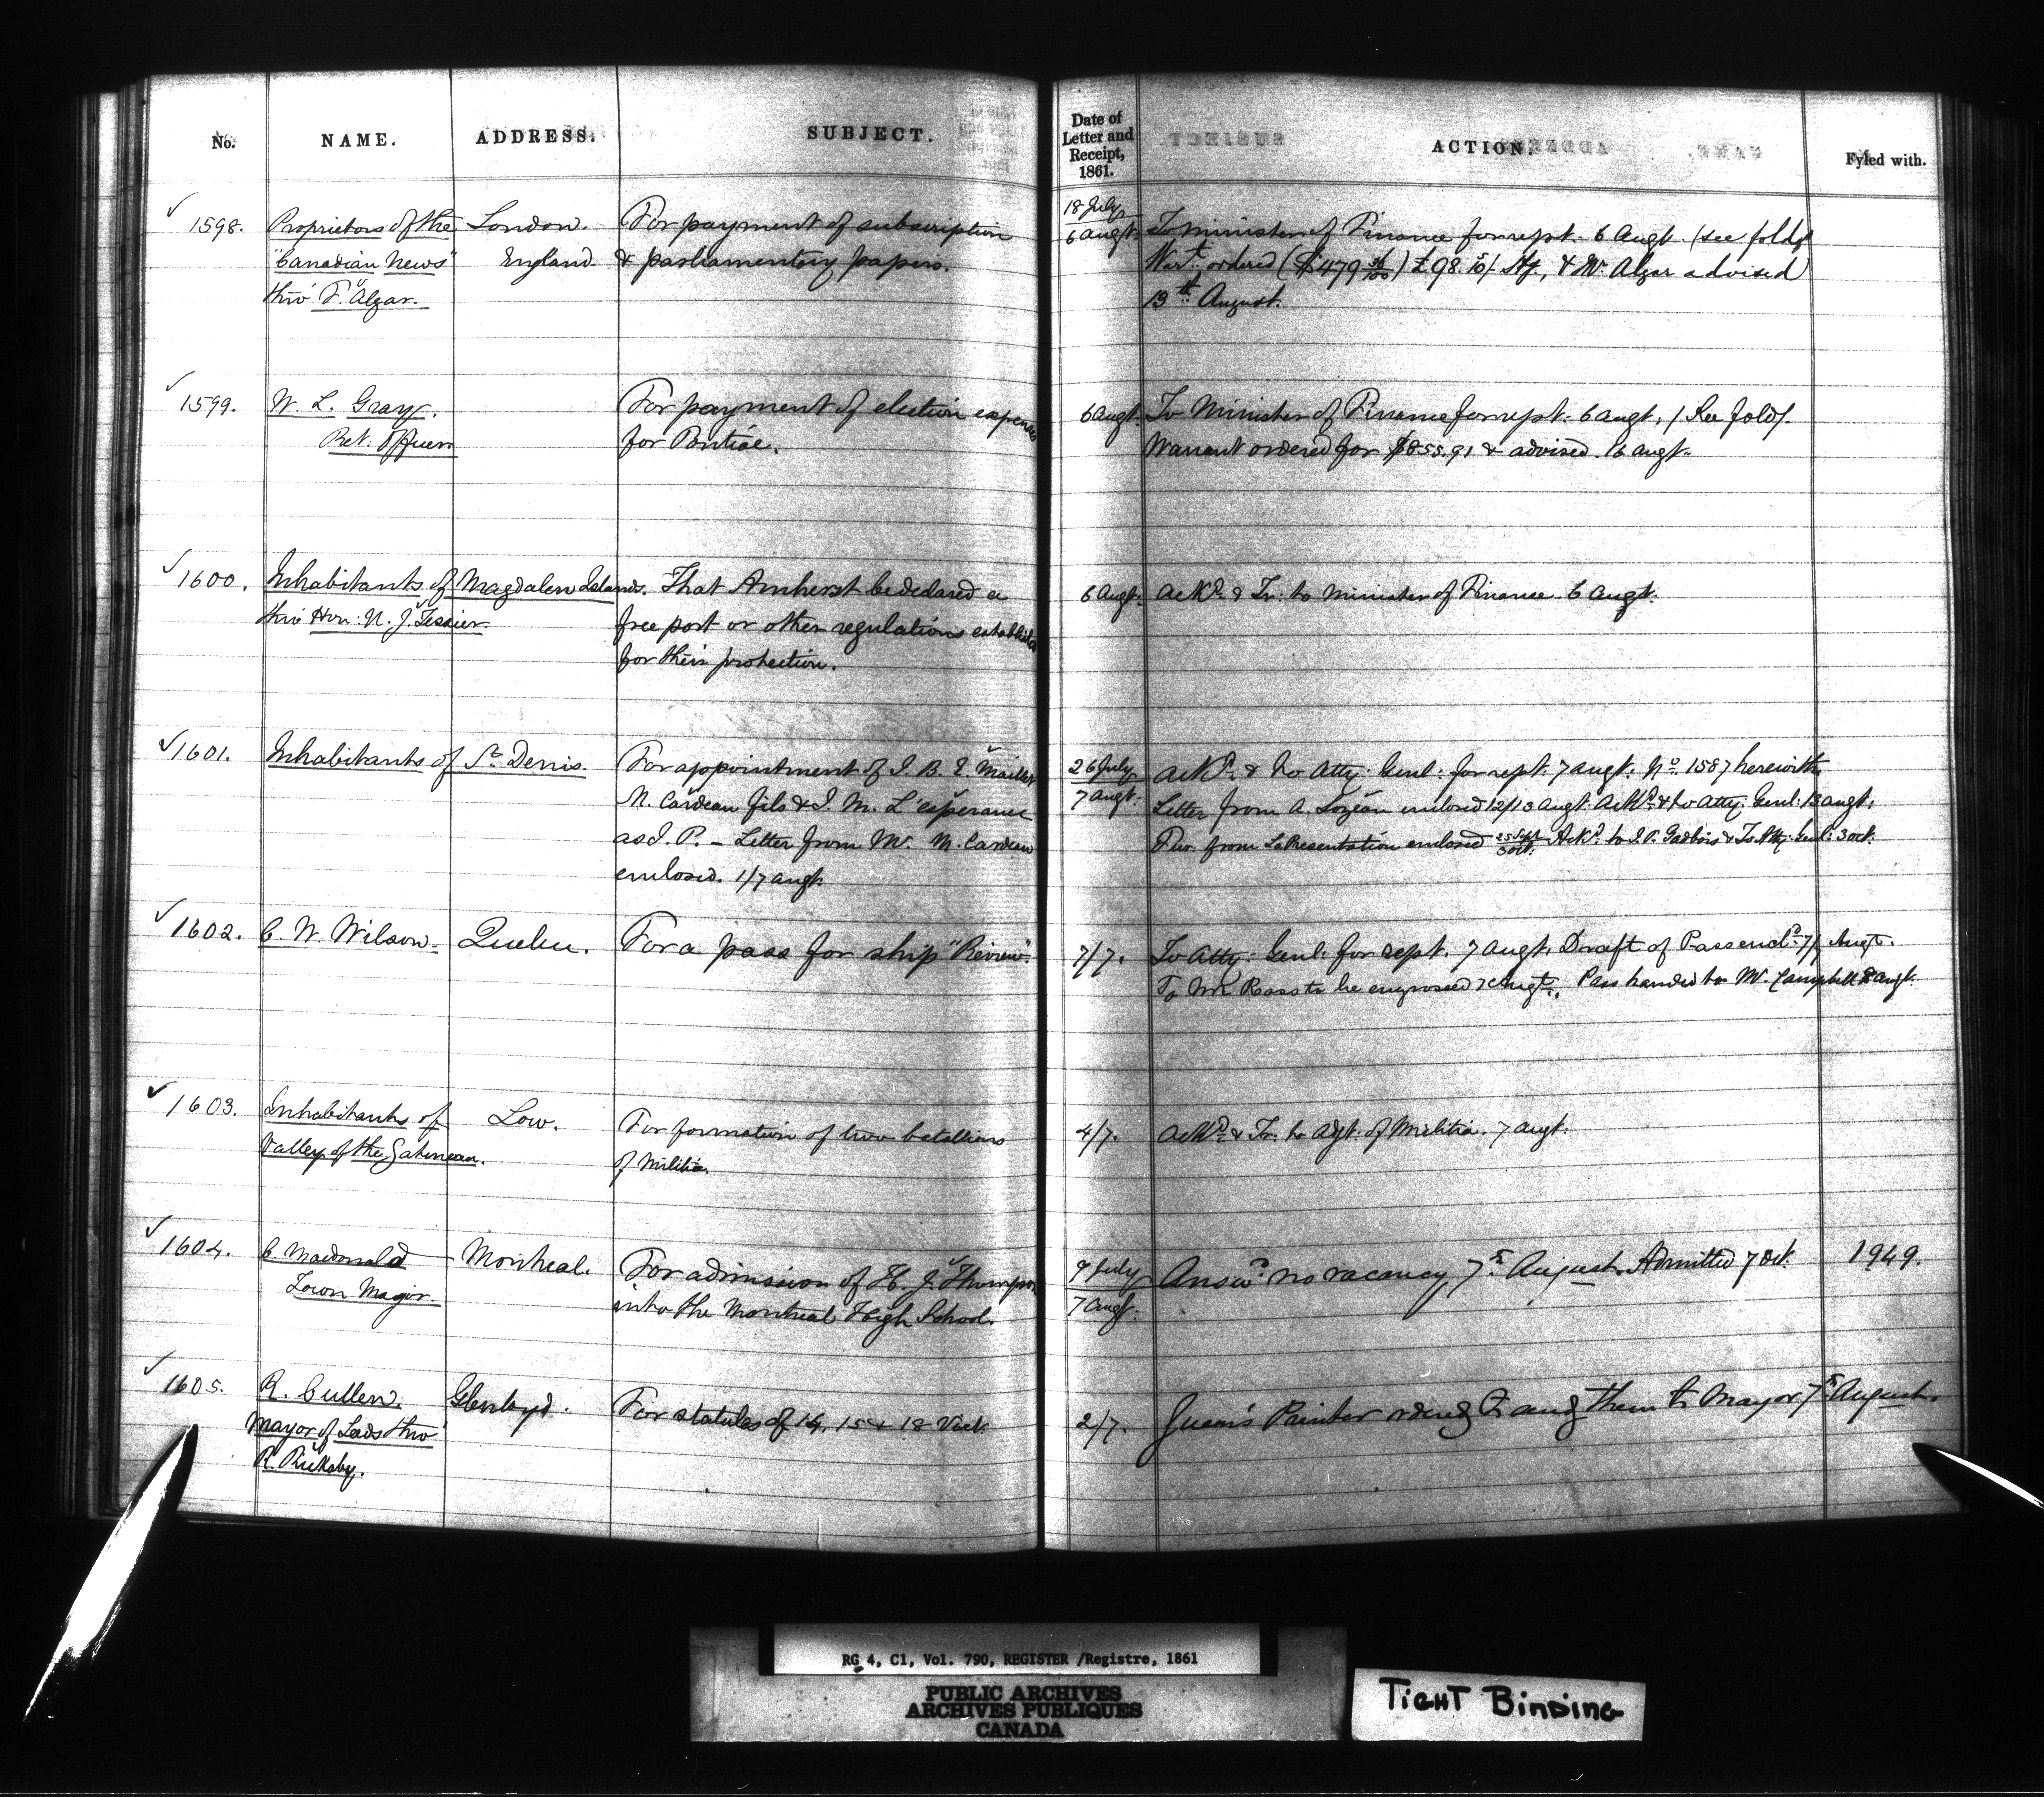 No. NAME. ADDRESS. SUBJECT. Date of Letter and Receipt, 1861. ACTION. Fyled with.
1598. Proprietors of the London. For payment of subscription 18 July 6 Augt. To Minister of Finance for rept. 6 Augt. (see fold)
"Canadian News" England. & parliamentary papers. Wart. ordered ($479 36/100) £98.10/. Stg, & Mr. Algar advised
thro' F. Algar. 13th August.
1599. W. L. Gray. For payment of election expenses 6 Augt. To Minister of Finance for rept. 6 Augt. (See fold).
Ret. Officer for Pontiac. Warrant ordered for $855.91 & advised. 16 Augt.
1600. Inhabitants of Magdalen Islands. That Amherst be declared a 6 Augt. Ackd. & Tr. to Minister of Finance 6 Augt.
thro' Hon: U. J. Tessier. free port or other regulations established
for their protection.
1601. Inhabitants of St. Denis. For appointment of J. B. E. Maillet 26 July 7 Augt. Ackd. & to Atty: Genl: for rept. 7 Augt. No. 1587 herewith
N. Cardeau fils & J. M. L'esperance Letter from A. Lozeau enclosed 12/13 Augt. Ackd. & to Atty: Genl: 13 Augt.
as J. P. - Letter from Mr. M. Cardeau from LaPresentation enclosed 25 Sept 3 Oct. Ackd. to J. P. Gadbois & To Atty: Genl: 3 Oct.
enclosed. 1/7 Augt.
1602. C. W. Wilson. Quebec. For a pass for ship "Review". 7/7. To Atty: Genl: for rept. 7 Augt. Draft of Pass encld. 7/ Augt.
To Mr. Ross to be engrossed 7 Augt. Pass handed to Mr. Campbell 8 Augt.
1603. Inhabitants of Low. For formation of two batallions 4/7. Ackd. & Tr. to Adjt. of Militia. 7 Augt.
Valley of the Gatineau. of Militia.
1604. C Macdonald Montreal. For admission of H. J. Thompson 9 July 7 Augt. Answd. no vacancy 7th August. Admitted 7 Oct. 1949.
Town Major. into the Montreal High School.
1605. R. Cullen. Glenloyd. For statutes of 14, 15 & 18 Vict. 2/7. Queen's Printer ordered to send them to Mayor 7th August.
Mayor of Leeds thro'
R.
RG 4, C1, Vol. 790, REGISTER /Registre, 1861
PUBLIC ARCHIVES
ARCHIVES PUBLIQUES
CANADA
TIGHT BINDING